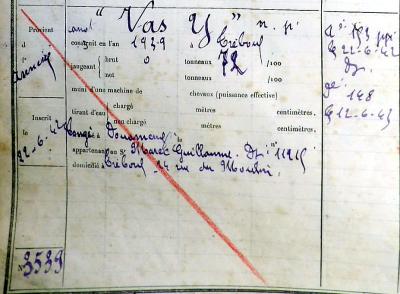 Provient canot "Vas Y" n. pi
d construit en l'an 1939 Tréboul
jaugeant brut 0 tonneaux 72 /100
net tonneaux /100
muni d'une machine de chevaux (puissance effective)
tirant d'eau chargé mètres centimètres.
non chargé mètres centimètres.
Inscrit
le Douarnenez le
22-6-42
appartenant au Sr Marec Guillaume. Dz: 11215
domicilié à Tréboul 24 rue du Moulin.
N° 3539
le 22-6-42
Dz.
148
le 12-6-43